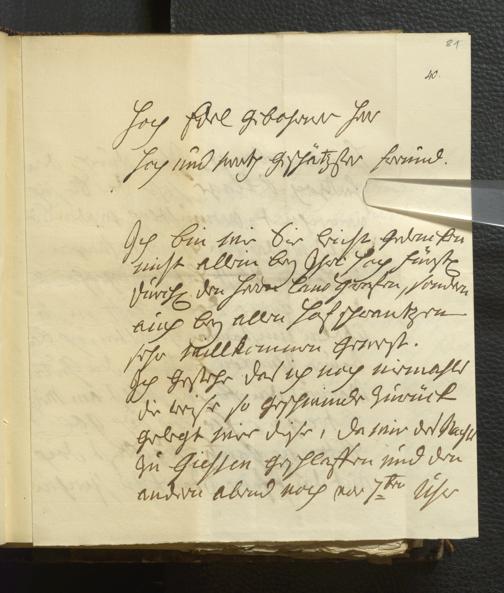 81
40.
Hoch Edel gebohrner Herr
Hoch und werth geschätzter freund.
Ich bin wie Sie leicht gedencken
nicht allein bey Ihro Hoch fürstl
durchl den Herrn landgrafen, sondern
auch bey allen Hofschrantzen
sehr willkommen gewest.
Ich gestehe das ich noch niemahls
die reise so geschwinde zurück
gelegt wie diese, da wir des Nachts
zu Giessen geschlaffen und den
andern abend noch vor 7 ben Uhr